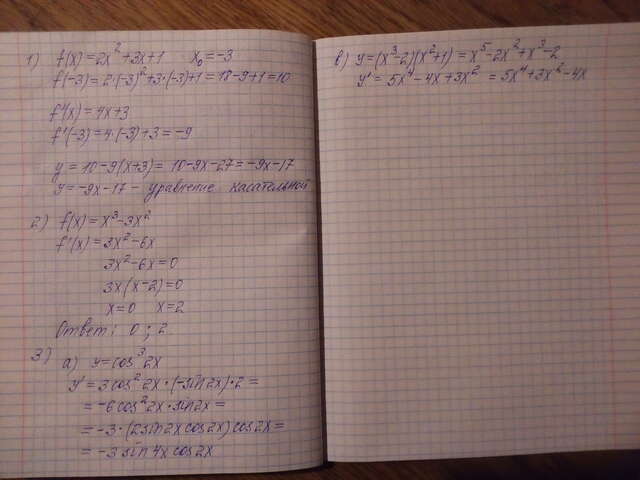 1) f(x) = 2x² + 3x + 1    x₀ = -3
f(-3) = 2·(-3)² + 3·(-3) + 1 = 18 - 9 + 1 = 10
f'(x) = 4x + 3
f'(-3) = 4·(-3) + 3 = -9
y = 10 - 9(x+3) = 10 - 9x - 27 = -9x - 17
y = -9x - 17 - уравнение касательной
2) f(x) = x³ - 3x²
f'(x) = 3x² - 6x
3x² - 6x = 0
3x(x-2) = 0
x = 0    x = 2
Ответ: 0 ; 2
3) а) y = cos³2x
y' = 3cos²2x·(-sin2x)·2 =
= -6cos²2x·sin2x =
= -3·(2sin2x cos2x)cos2x =
= -3 sin4x cos2x
в) y = (x³-2)(x²+1) = x⁵ - 2x² + x³ - 2
y' = 5x⁴ - 4x + 3x² = 5x⁴ + 3x² - 4x